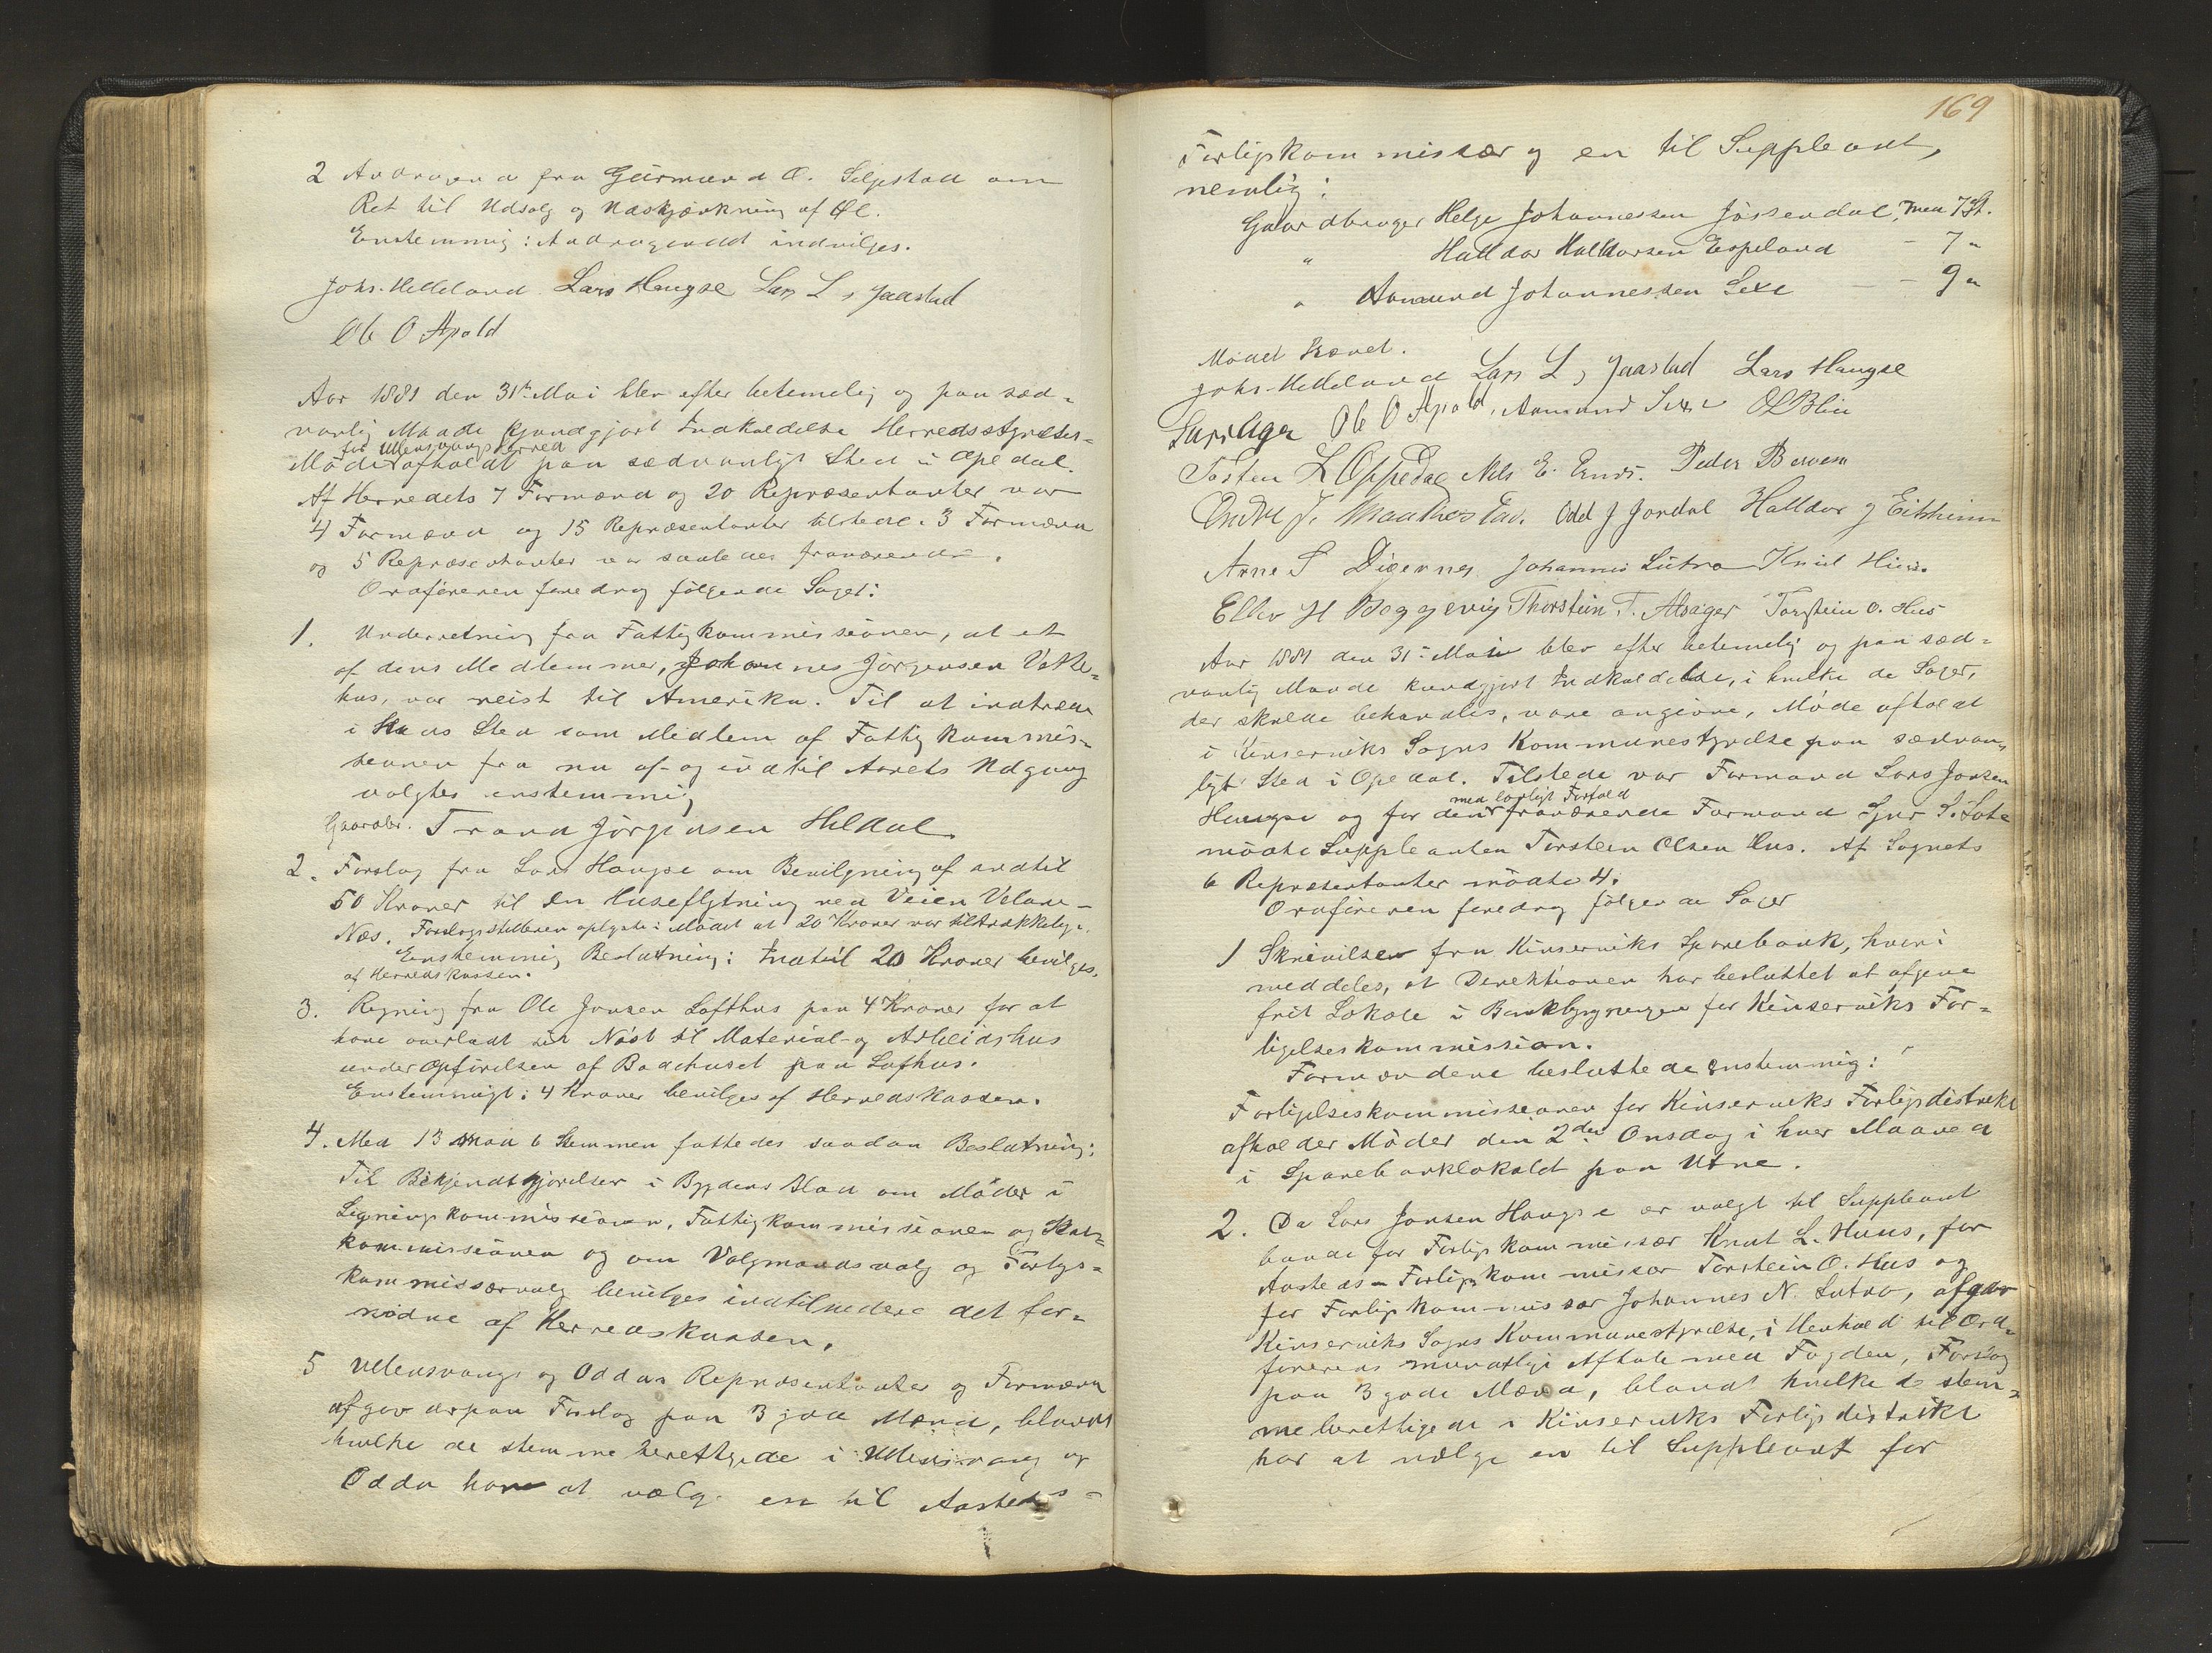 2 Andragend fra Gurmund O. Siljestad om
Ret til Udsalg og Udskjænkning af Øl.
Enstemmig: Andragendet indvilges.
Johs. Helleland Lars Haugse Lars L. Jaastad
Ole O Apold
Aar 1881 den 31te Mai blev efter betimelig og paa sæd-
vanlig Maade kundgjort Indkaldelse Herredsstyrelses-
for Ullensvangs Herred
Møde afholdt paa sædvanligt Sted i Opedal.
Af Herredets 7 Formænd og 20 Repræsentanter var
4 Formænd og 15 Repræsentanter tilstede. 3 Formænd
og 5 Repræsentanter var saaledes fraværende.
Ordføreren foredrog følgende Sager:
1. Underretning fra Fattigkommissionen, at et
af dens Medlemmer, Johannes Jørgensen Vatle-
hus, var reist til Amerika. Til at indtræde
i Hans Sted som Medlem af Fattigkommis-
sionen fra nu af og indtil Aarets Udgang
valgtes enstemmig
Gaardbr. Trond Jørgensen Hildal
2. Forslag fra Lars Haugse om Bevilgning af indtil
50 Kroner til en Huseflytning ved Veien Velure-
Næs. Forslagsstilleren oplyste i Mødet at 20 Kroner var tilstrækkelige.
Enstemmig Beslutning: Indtil 20 Kroner bevilges
af Herredskassen.
3. Regning fra Ole Jonsen Lofthus paa 4 Kroner for at
have overladt sit Nøst til Material- og Arbeidshus
under Opførelsen af Badehuset paa Lofthus.
Enstemmigt: 4 Kroner bevilges af Herredskassen.
4. Med 13 mod 6 Stemmer fattedes saadan Beslutning:
Til Bekjendtgjørelser i Bygdens Blad om Møder i
Ligningskommissionen, Fattigkommissionen og Skole-
kommissionen og om Valgmandsvalg og Forligs-
kommissærvalg bevilges indtilvidere det for-
nødne af Herredskassen.
5 Ullensvangs og Oddas Repræsentanter og Formænd
afgav derpaa Forslag paa 3 gode Mænd, blandt
hvilke de stemmeberettigede i Ullensvang og
Odda have at vælge en til Aasteds-
169
Forligskommissær og en til Suppleant,
nemlig:
Gaardbruger Helge Johannessen Jøssendal, med 7 St.
" Halldor Halldorsen Espeland - 7 "
" Aamund Johannessen Sexe - 9 "
Mødet hævet.
Johs. Helleland Lars L. Jaastad Lars Haugse
Ole O Apold, Aamund Sexe O L Blie
Tosten L Oppedal Nils E. Peder Berven
Endre J. Maakestad. Odd J Jordal Halldor J Eitrheim
Arne S Digernes Johannes Lutro Knut Huus.
Ellev H Beggevig Thorstein T. Alsager Torstein O. Hus
Aar 1881 den 31te Mai blev efter betimelig og paa sæd-
vanlig Maade kundgjort Indkaldelse, i hvilke de Sager,
der skulde behandles, vare angivne, Møde afholdt
i Kinserviks Sogns Kommunestyrelse paa sædvan-
ligt Sted i Opedal. Tilstede var Formand Lars Jonsen
med lovligt Forfald
Haugse og for den fraværende Formand Sjur S. Lote
mødte Suppleanten Torstein Olsen Hus. Af Sognets
6 Repræsentanter mødte 4.
Ordføreren foredrog følgende Sager
1 Skrivelse fra Kinserviks Sparebank, hvori
meddeles, at Direktionen har besluttet at afgive
frit Lokale i Bankbygningen for Kinserviks For-
ligelseskommission.
Formændene besluttede enstemmig:
Forligelseskommissionen for Kinserviks Forligsdistrikt
afholder Møder den 2den Onsdag i hver Maaned
i Sparebanklokalet paa Utne.
2. Da Lars Jonsen Haugse er valgt til Suppleant
baade for Forligskommissær Knut L. Huus, for
Aasteds-Forligskommissær Torstein O. Hus og
for Forligskommissær Johannes N. Lutro, afgav
Kinserviks Sogns Kommunestyrelse, i Henhold til Ord-
førerens mundtlige Aftale med Fogden, Forslag
paa 3 gode Mænd, blandt hvilke de stem-
meberettigede i Kinserviks Forligsdistrikt
har at vælge en til Suppleant for